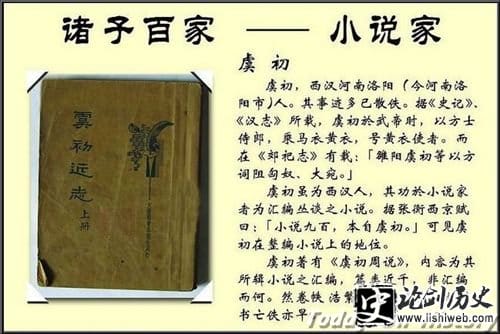 诸子百家 —— 小说家
虞初近志
上册
虞 初
虞初，西汉河南洛阳（今河南洛
阳市)人。其事迹多已散佚。据《史记》、
《汉志》所载，虞初於武帝时，以方士
侍郎，乘马衣黄衣，号黄衣使者。而
在《郊祀志》有载：「雒阳虞初等以方
词阻匈奴、大宛。」
虞初虽为西汉人，其功於小说家
者为汇编丛谈之小说。据张衡西京赋
曰：「小说九百，本自虞初。」可见虞
初在整编小说上的地位。
虞初著有《虞初周说》，内容为其
所辑小说之汇编，篇 近千，非汇编
而何。然卷帙 浩
书亡佚亦早
史 论剑历史
www.lishiweb.com